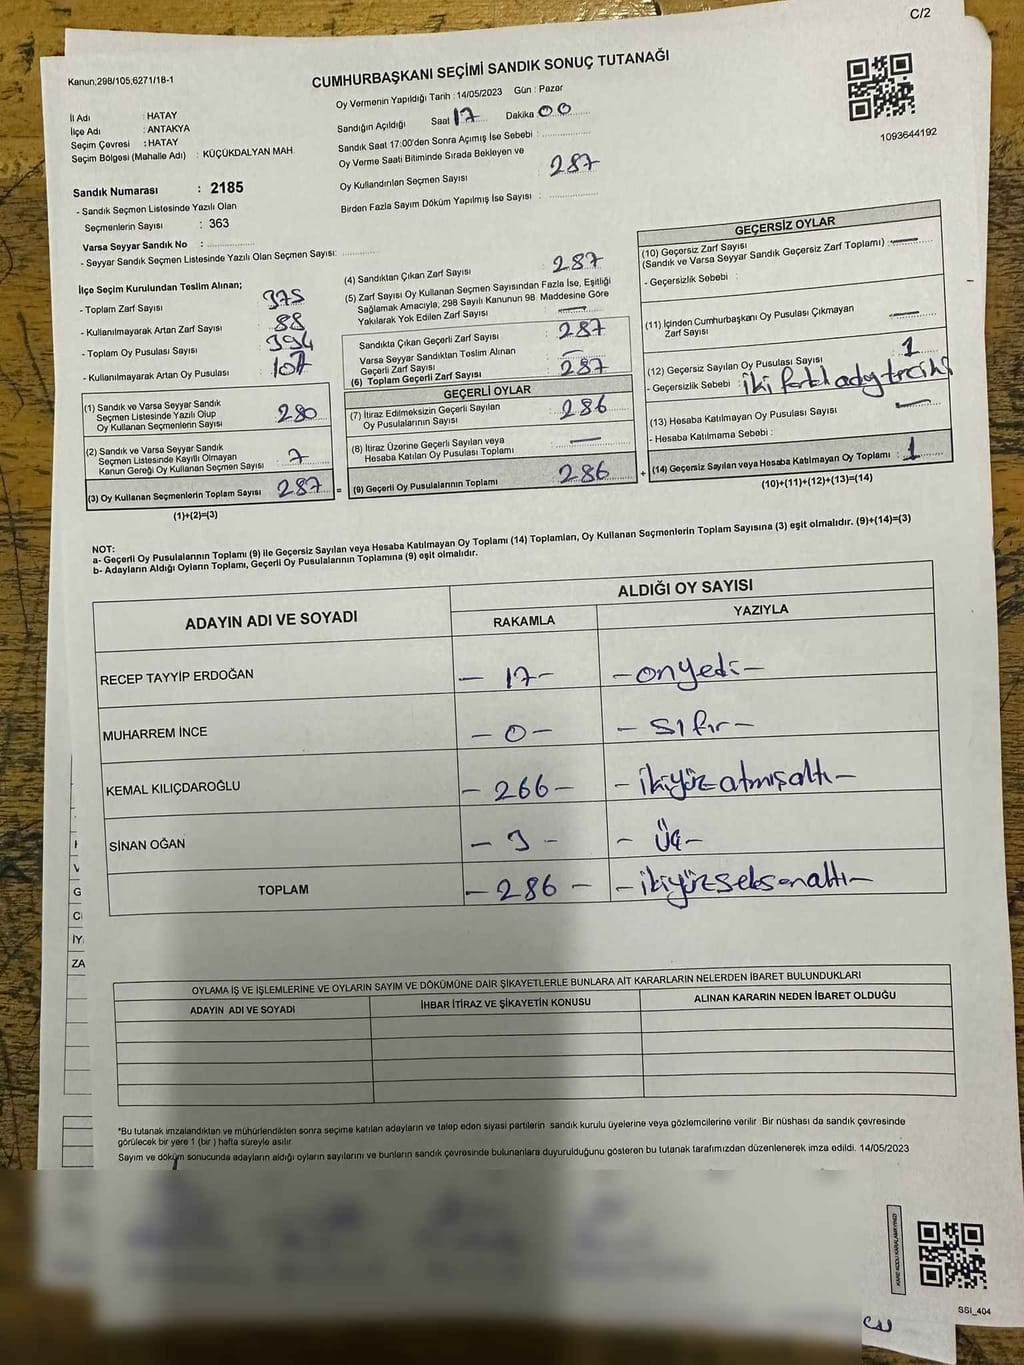 C/2
Kanun;298/105,6271/18-1
CUMHURBAŞKANI SEÇİMİ SANDIK SONUÇ TUTANAĞI
1093644192
İl Adı : HATAY
İlçe Adı : ANTAKYA
Seçim Çevresi : HATAY
Seçim Bölgesi (Mahalle Adı) : KÜÇÜKDALYAN MAH.
Sandık Numarası : 2185
- Sandık Seçmen Listesinde Yazılı Olan
Seçmenlerin Sayısı : 363
Varsa Seyyar Sandık No :
- Seyyar Sandık Seçmen Listesinde Yazılı Olan Seçmen Sayısı:
Oy Vermenin Yapıldığı Tarih : 14/05/2023 Gün : Pazar
Sandığın Açıldığı Saat 17 Dakika 00
Sandık Saat 17:00'den Sonra Açımış İse Sebebi :
Oy Verme Saati Bitiminde Sırada Bekleyen ve
Oy Kullandırılan Seçmen Sayısı : 287
Birden Fazla Sayım Döküm Yapılmış İse Sayısı :
İlçe Seçim Kurulundan Teslim Alınan;
- Toplam Zarf Sayısı : 375
- Kullanılmayarak Artan Zarf Sayısı : 88
- Toplam Oy Pusulası Sayısı : 394
- Kullanılmayarak Artan Oy Pusulası : 107
(1) Sandık ve Varsa Seyyar Sandık
Seçmen Listesinde Yazılı Olup
Oy Kullanan Seçmenlerin Sayısı : 280
(2) Sandık ve Varsa Seyyar Sandık
Seçmen Listesinde Kayıtlı Olmayan
Kanun Gereği Oy Kullanan Seçmen Sayısı : 7
(3) Oy Kullanan Seçmenlerin Toplam Sayısı : 287 =
(1)+(2)=(3)
(4) Sandıktan Çıkan Zarf Sayısı : 287
(5) Zarf Sayısı Oy Kullanan Seçmen Sayısından Fazla İse, Eşitliği
Sağlamak Amacıyla, 298 Sayılı Kanunun 98. Maddesine Göre
Yakılarak Yok Edilen Zarf Sayısı : —
Sandıkta Çıkan Geçerli Zarf Sayısı : 287
Varsa Seyyar Sandıktan Teslim Alınan
Geçerli Zarf Sayısı : —
(6) Toplam Geçerli Zarf Sayısı : 287
GEÇERLİ OYLAR
(7) İtiraz Edilmeksizin Geçerli Sayılan
Oy Pusulalarının Sayısı : 286
(8) İtiraz Üzerine Geçerli Sayılan veya
Hesaba Katılan Oy Pusulası Toplamı : —
(9) Geçerli Oy Pusulalarının Toplamı : 286 +
GEÇERSİZ OYLAR
(10) Geçersiz Zarf Sayısı
(Sandık ve Varsa Seyyar Sandık Geçersiz Zarf Toplamı) : —
- Geçersizlik Sebebi :
(11) İçinden Cumhurbaşkanı Oy Pusulası Çıkmayan
Zarf Sayısı : —
(12) Geçersiz Sayılan Oy Pusulası Sayısı : 1
- Geçersizlik Sebebi : iki farklı aday tercihi
(13) Hesaba Katılmayan Oy Pusulası Sayısı : —
- Hesaba Katılmama Sebebi :
(14) Geçersiz Sayılan veya Hesaba Katılmayan Oy Toplamı : 1
(10)+(11)+(12)+(13)=(14)
NOT:
a- Geçerli Oy Pusulalarının Toplamı (9) ile Geçersiz Sayılan veya Hesaba Katılmayan Oy Toplamı (14) Toplamları, Oy Kullanan Seçmenlerin Toplam Sayısına (3) eşit olmalıdır. (9)+(14)=(3)
b- Adayların Aldığı Oyların Toplamı, Geçerli Oy Pusulalarının Toplamına (9) eşit olmalıdır.
ADAYIN ADI VE SOYADI
ALDIĞI OY SAYISI
RAKAMLA YAZIYLA
RECEP TAYYİP ERDOĞAN — 17 — — onyedi —
MUHARREM İNCE — 0 — — sıfır —
KEMAL KILIÇDAROĞLU — 266 — — ikiyüz atmışaltı —
SİNAN OĞAN — 3 — — üç —
TOPLAM — 286 — — ikiyüzseksenaltı —
OYLAMA İŞ VE İŞLEMLERİNE VE OYLARIN SAYIM VE DÖKÜMÜNE DAİR ŞİKAYETLERLE BUNLARA AİT KARARLARIN NELERDEN İBARET BULUNDUKLARI
ADAYIN ADI VE SOYADI İHBAR İTİRAZ VE ŞİKAYETİN KONUSU ALINAN KARARIN NEDEN İBARET OLDUĞU
*Bu tutanak imzalandıktan ve mühürlendikten sonra seçime katılan adayların ve talep eden siyasi partilerin sandık kurulu üyelerine veya gözlemcilerine verilir. Bir nüshası da sandık çevresinde
görülecek bir yere 1 (bir) hafta süreyle asılır.
Sayım ve döküm sonucunda adayların aldığı oyların sayılarını ve bunların sandık çevresinde bulunanlara duyurulduğunu gösteren bu tutanak tarafımızdan düzenlenerek imza edildi. 14/05/2023
V
G
İY
ZA
SSI_404